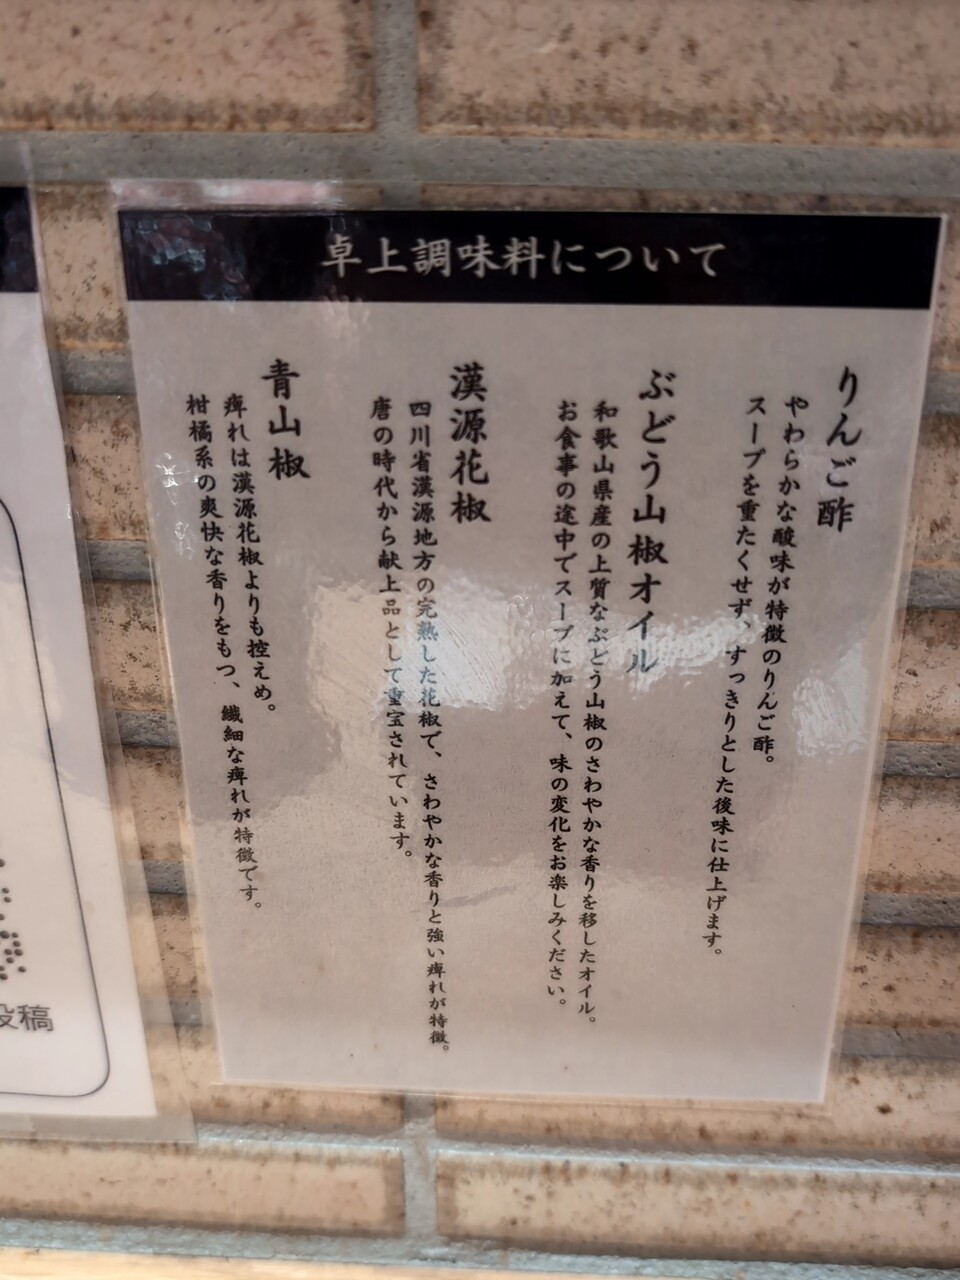 卓上調味料について
りんご酢
やわらかな酸味が特徴のりんご酢。
スープを重たくせず、すっきりとした後味に仕上げます。
ぶどう山椒オイル
和歌山県産の上質なぶどう山椒のさわやかな香りを移したオイル。
お食事の途中でスープに加えて、味の変化をお楽しみください。
漢源花椒
四川省漢源地方の完熟した花椒で、さわやかな香りと強い痺れが特徴。
唐の時代から献上品として重宝されています。
青山椒
痺れは漢源花椒よりも控えめ。
柑橘系の爽快な香りをもつ、繊細な痺れが特徴です。
投稿